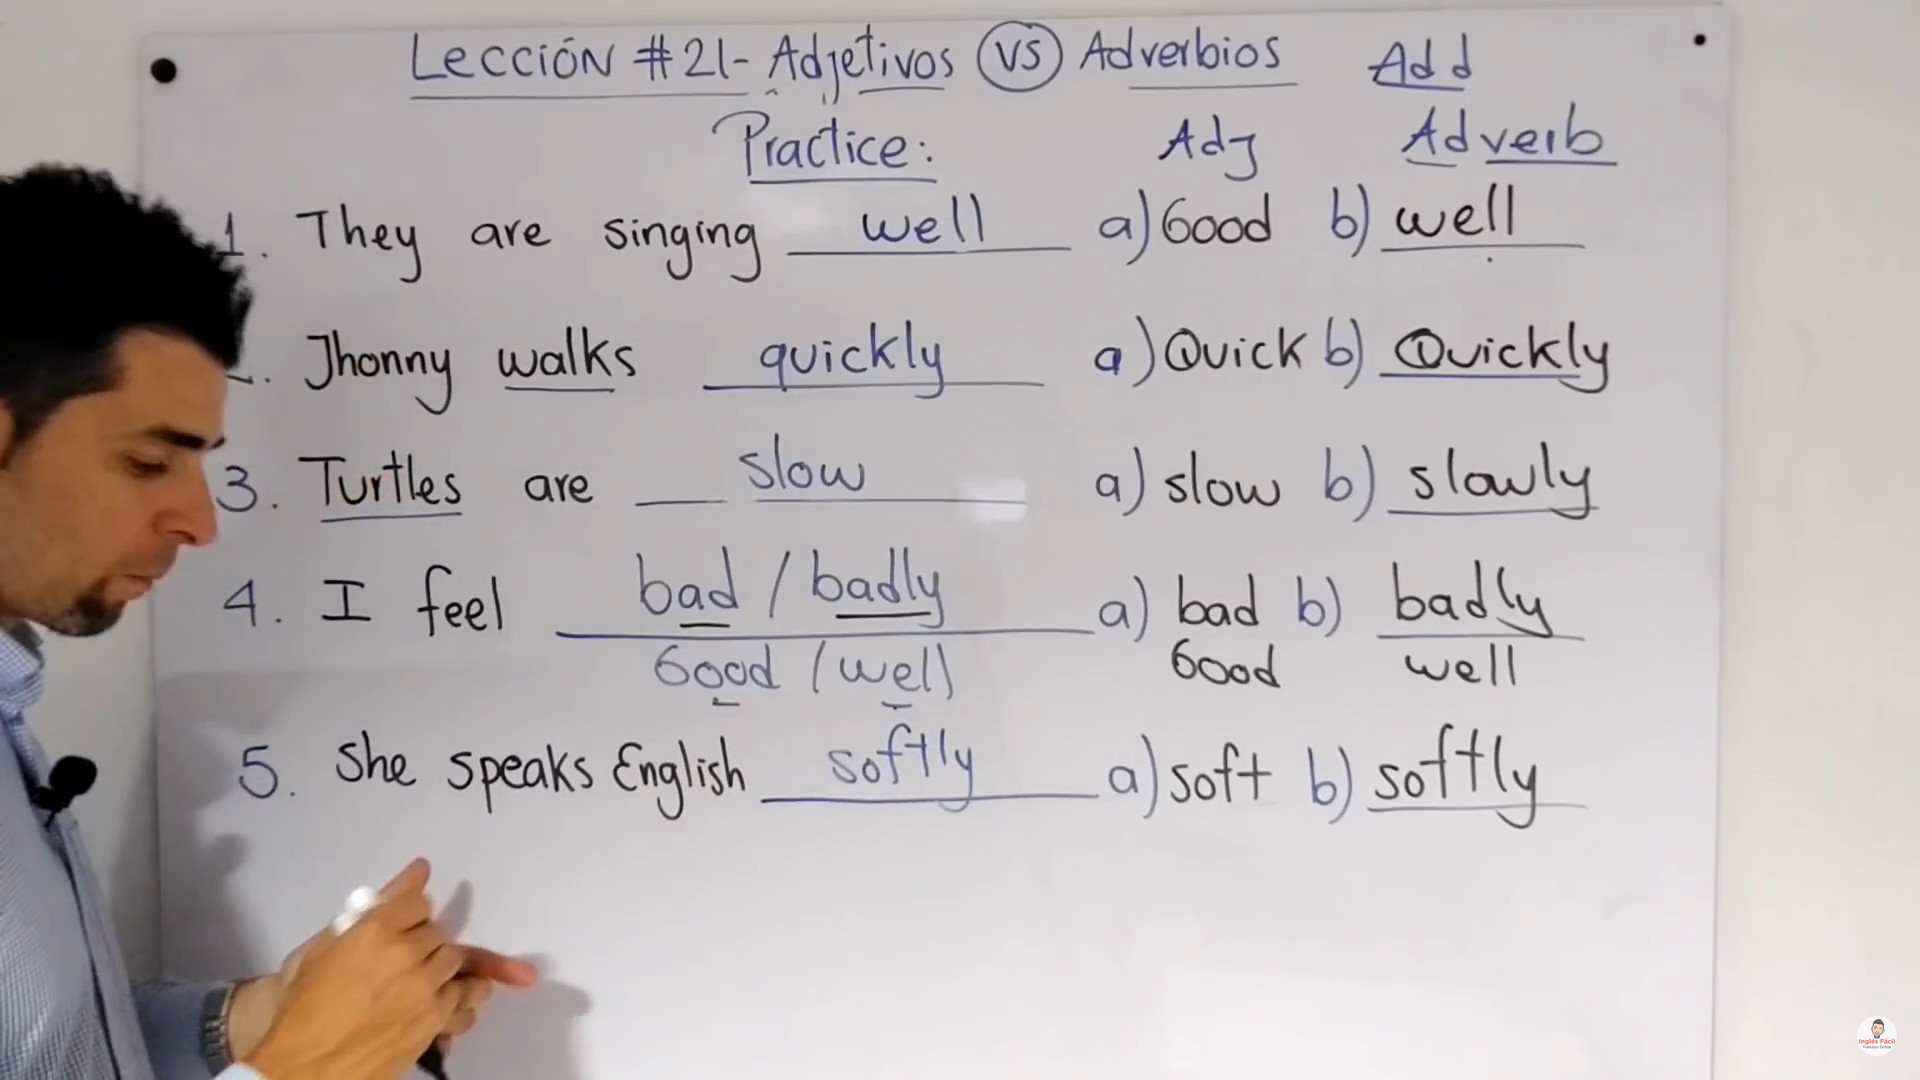 Lección #21- Adjetivos VS Adverbios Add
Practice: Adj Adverb
1. They are singing well a) Good b) well
2. Jhonny walks quickly a) Quick b) Quickly
3. Turtles are slow a) slow b) slowly
4. I feel bad / badly a) bad b) badly
Good / well Good well
5. She speaks English softly a) soft b) softly
Inglés Fácil